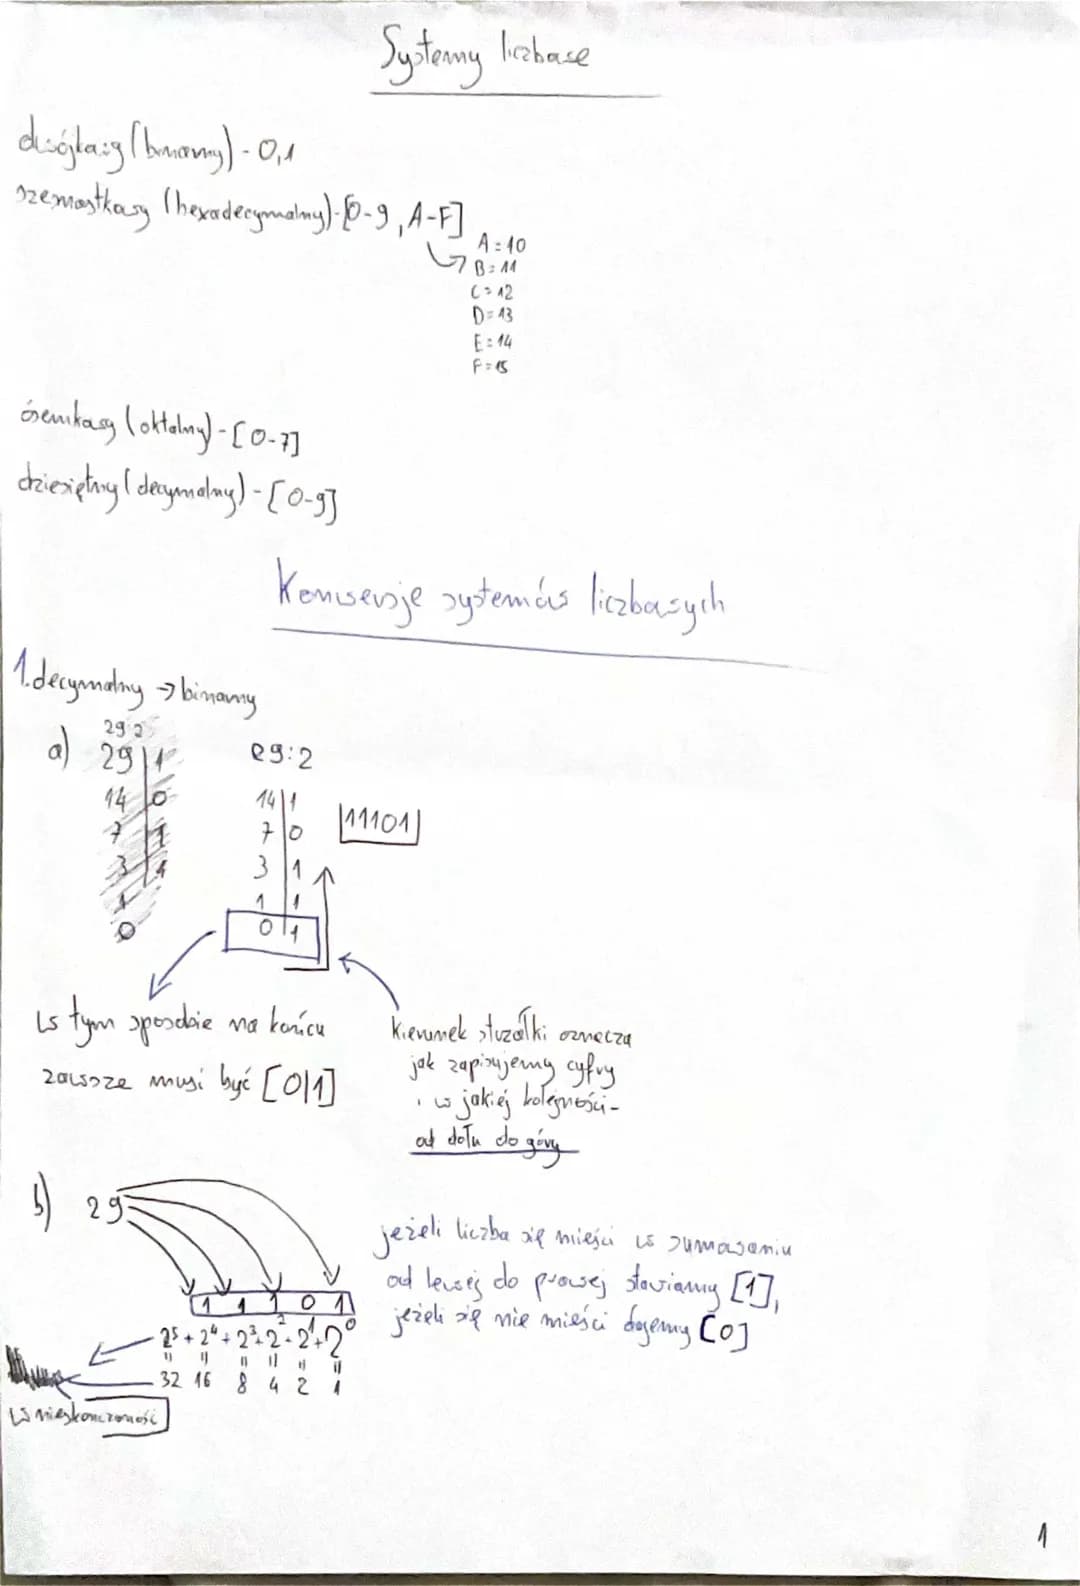 Systemy liczbowe
dwójkowy (binarny) - 0,1
szesnastkowy (hexadecymalny) - [0-9, A-F]
A = 10
B = 11
C = 12
D = 13
E = 14
F = 15
ósemkowy (oktalny) - [0-7]
dziesiętny (decymalny) - [0-9]
Konwersje systemów liczbowych
1. decymalny → binarny
29:2
a) 29 | 1
14 | 0
7 | 1
3 | 1
1
0
29:2
14 | 1
7 | 0
3 | 1
1 | 1
0 | 1
11101
w tym sposobie na końcu
zawsze musi być [0|1]
kierunek strzałki oznacza
jak zapisujemy cyfry
i w jakiej kolejności -
od dołu do góry
b) 29
1 1 1 0 1
2⁵ + 2⁴ + 2³ + 2² + 2¹ + 2⁰
" " " " " "
32 16 8 4 2 1
w nieskończoność
jeżeli liczba się mieści w sumowaniu
od lewej do prawej stawiamy [1],
jeżeli się nie mieści dajemy [0]
1